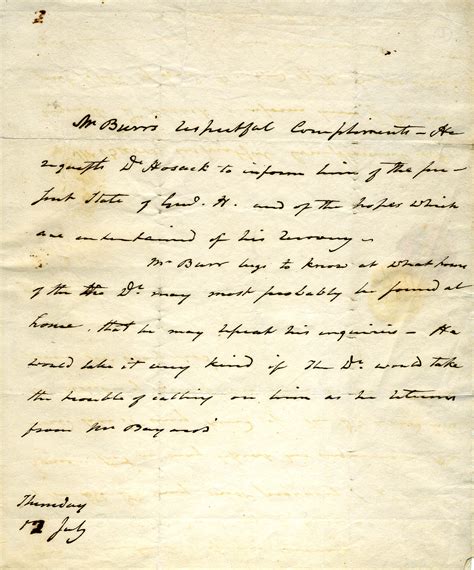 Mr Burr's respectful Compliments – He
requests Dr Hosack to inform him of the pre-
sent State of Genl. H. and of the hopes which
are entertained of his recovery –
Mr Burr begs to know at what hour
of the the Dr. may most probably be found at
home, that he may repeat his inquiries – He
would take it very kind if the Dr. would take
the trouble of calling on him as he returns
from Mr Bayard's
Thursday
12 July